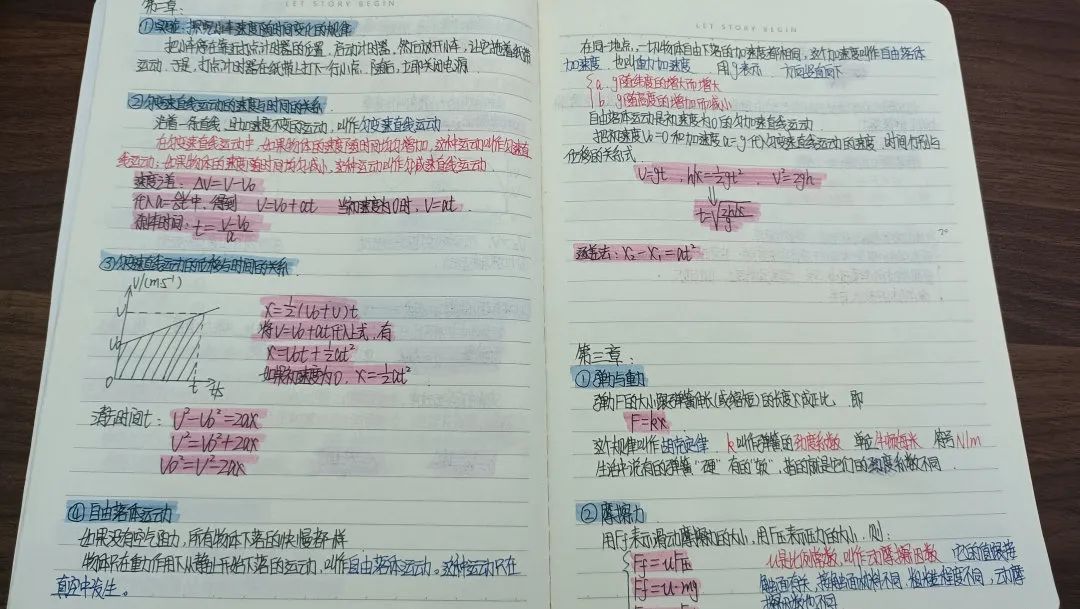 第二章:
①实验:探究小车速度随时间变化的规律
把小车停在靠近打点计时器的位置,启动计时器,然后放开小车,让它拖着纸带
运动.于是,打点计时器在纸带上打下一行小点.随后,立即关闭电源.
②匀变速直线运动的速度与时间的关系
沿着一条直线,且加速度不变的运动,叫作匀变速直线运动
在匀变速直线运动中,如果物体的速度随时间均匀增加,这种运动叫作匀加速直
线运动;如果物体的速度随时间均匀减小,这种运动叫作匀减速直线运动.
速度公差:ΔV=V-V₀
代入a=中,得到 V=V₀+at 当初速度为0时,V=at.
时间:t=(V-V₀)/a
③匀变速直线运动的位移与时间的关系
V/(m·s⁻¹)
V
V₀
0 t t/s
x=½(V₀+V)t
将V=V₀+at代入上式,有
x=V₀t+½at²
如果初速度为0,x=½at²
消去时间t: V²-V₀²=2ax
V²=V₀²+2ax
V₀²=V²-2ax
④自由落体运动
如果没有空气阻力,所有物体下落的快慢都一样
物体只在重力作用下从静止开始下落的运动,叫作自由落体运动。这种运动只在
真空中发生。
LET STORY BEGIN
在同一地点,一切物体自由下落的加速度都相同,这个加速度叫作自由落体
加速度,也叫重力加速度.用g表示 方向竖直向下
a.g随纬度的增大而增大
b.g随高度的增加而减小
自由落体运动是初速度为0的匀加速直线运动.
把初速度V₀=0和加速度a=g代入匀变速直线运动的速度、时间分别与
位移的关系式
V=gt, h/x=½gt², V²=2gh
⇓
t=√(2h/x/g)
逐差法:x₂-x₁=at²
第三章:
①弹力与重力
弹力F的大小跟弹簧伸长(或缩短)的长度x成正比,即
F=kx
这个规律叫作胡克定律. k叫作弹簧的劲度系数 单位牛顿每米,符号N/m
生活中说有的弹簧“硬”有的“软”,指的就是它们的劲度系数不同.
②摩擦力
用Ff表示滑动摩擦力的大小,用F压表示压力的大小,则:
Ff=uF压 u是比例常数,叫作动摩擦因数 它的值跟接
Ff=u·mg 触面有关,接触面材料不同,粗糙程度不同,动摩
擦因数也不同